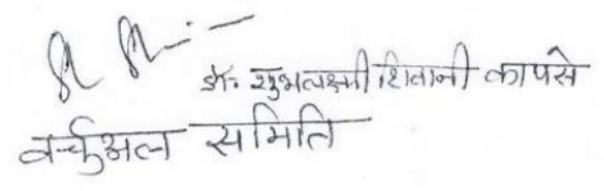 डॉ. शुभलक्ष्मी शिवानी कापसे
वर्चुअल समिति